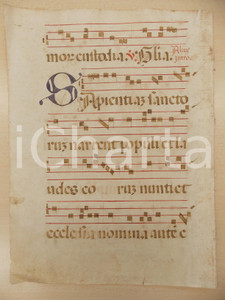 mor custodia. & Glia.
Sapientiaz sancto
ruz narrent populi et la
udes eo ruz nuntiet
ecclesia nomina aute e
iCharta